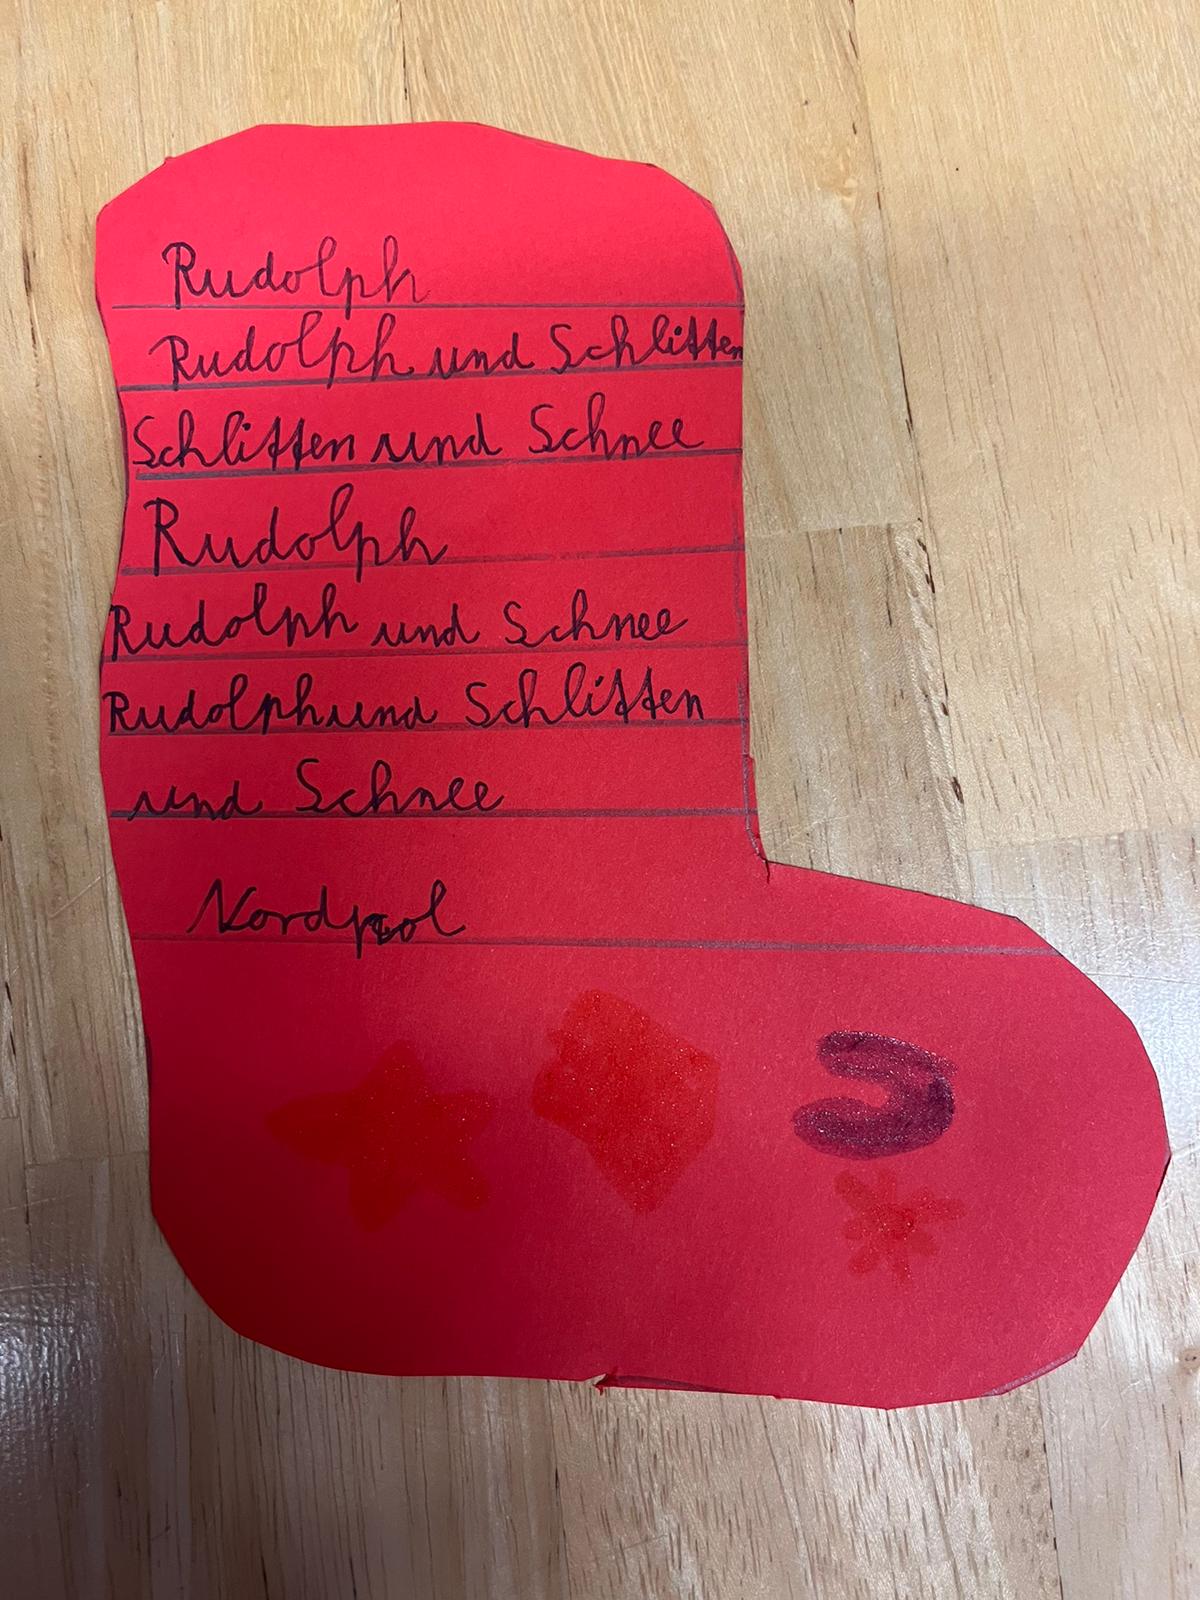 Rudolph
Rudolph und Schlitten
Schlitten und Schnee
Rudolph
Rudolph und Schnee
Rudolph und Schlitten
und Schnee
Nordpol